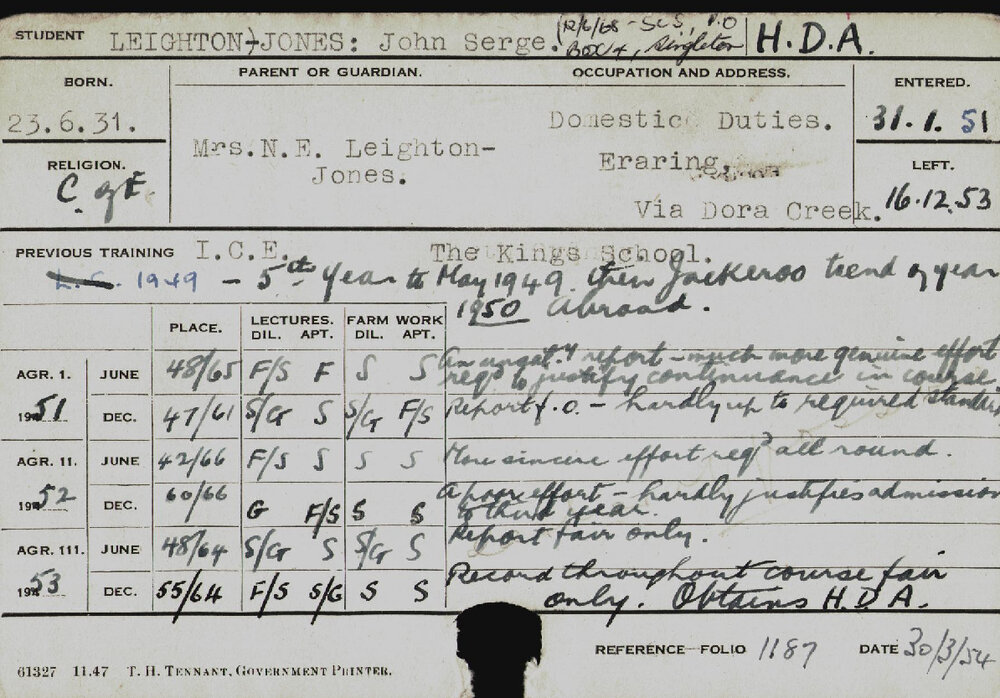 STUDENT LEIGHTON-JONES: John Serge. (12/6/68 - SCS, P.O BOX 4, Singleton) H.D.A.
BORN. PARENT OR GUARDIAN. OCCUPATION AND ADDRESS. ENTERED.
23.6.31. Domestic Duties. 31.1.51
Mrs.N.E. Leighton-
Jones.
RELIGION. Eraring, LEFT.
C of E. Via Dora Creek. 16.12.53
PREVIOUS TRAINING I.C.E. The Kings School.
L.C. 1949 - 5th Year to May 1949. then Jackeroo to end of year
1950 Abroad.
PLACE. LECTURES. FARM WORK
DIL. APT. DIL. APT.
AGR. 1. JUNE 48/65 F/S F S S An unsat.y report - much more genuine effort
reqd to justify continuance in course.
1951 DEC. 47/61 S/G S S/G F/S Report f.o. - hardly up to required standard
AGR. 11. JUNE 42/66 F/S S S S More sincere effort reqd all round.
1952 DEC. 60/66 G F/S S S A poor effort - hardly justifies admission
to third year.
AGR. 111. JUNE 48/64 S/G S S/G S Report fair only.
1953 DEC. 55/64 F/S S/G S S Record throughout course fair
only. Obtains H.D.A.
REFERENCE FOLIO 1187 DATE 30/3/54
61327 11.47 T. H. TENNANT, GOVERNMENT PRINTER.